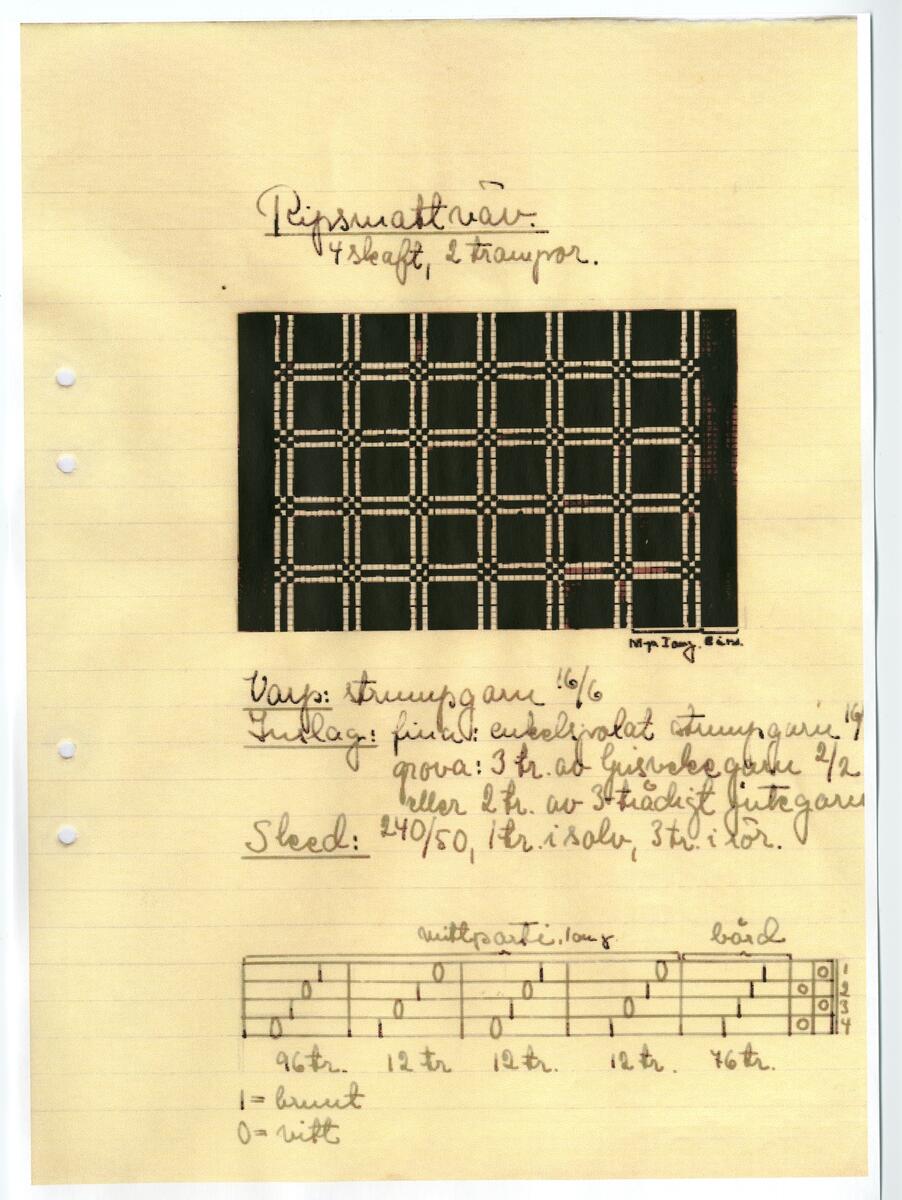 Ripsmattväv.
4 skaft, 2 trampor.
Bård.
Varp: strumpgarn 16/6
Inslag: fina: enkelspolat strumpgarn 16/
grova: 3 tr. av ljusvekegarn 2/2
eller 2 tr. av 3-trådigt jutegarn
Sked: 240/50, 1 tr. i solv, 3 tr. i rör.
mittparti 1 bård
1
2
3
4
96 tr. 12 tr 12 tr. 12 tr. 76 tr.
1 = brunt
0 = vitt